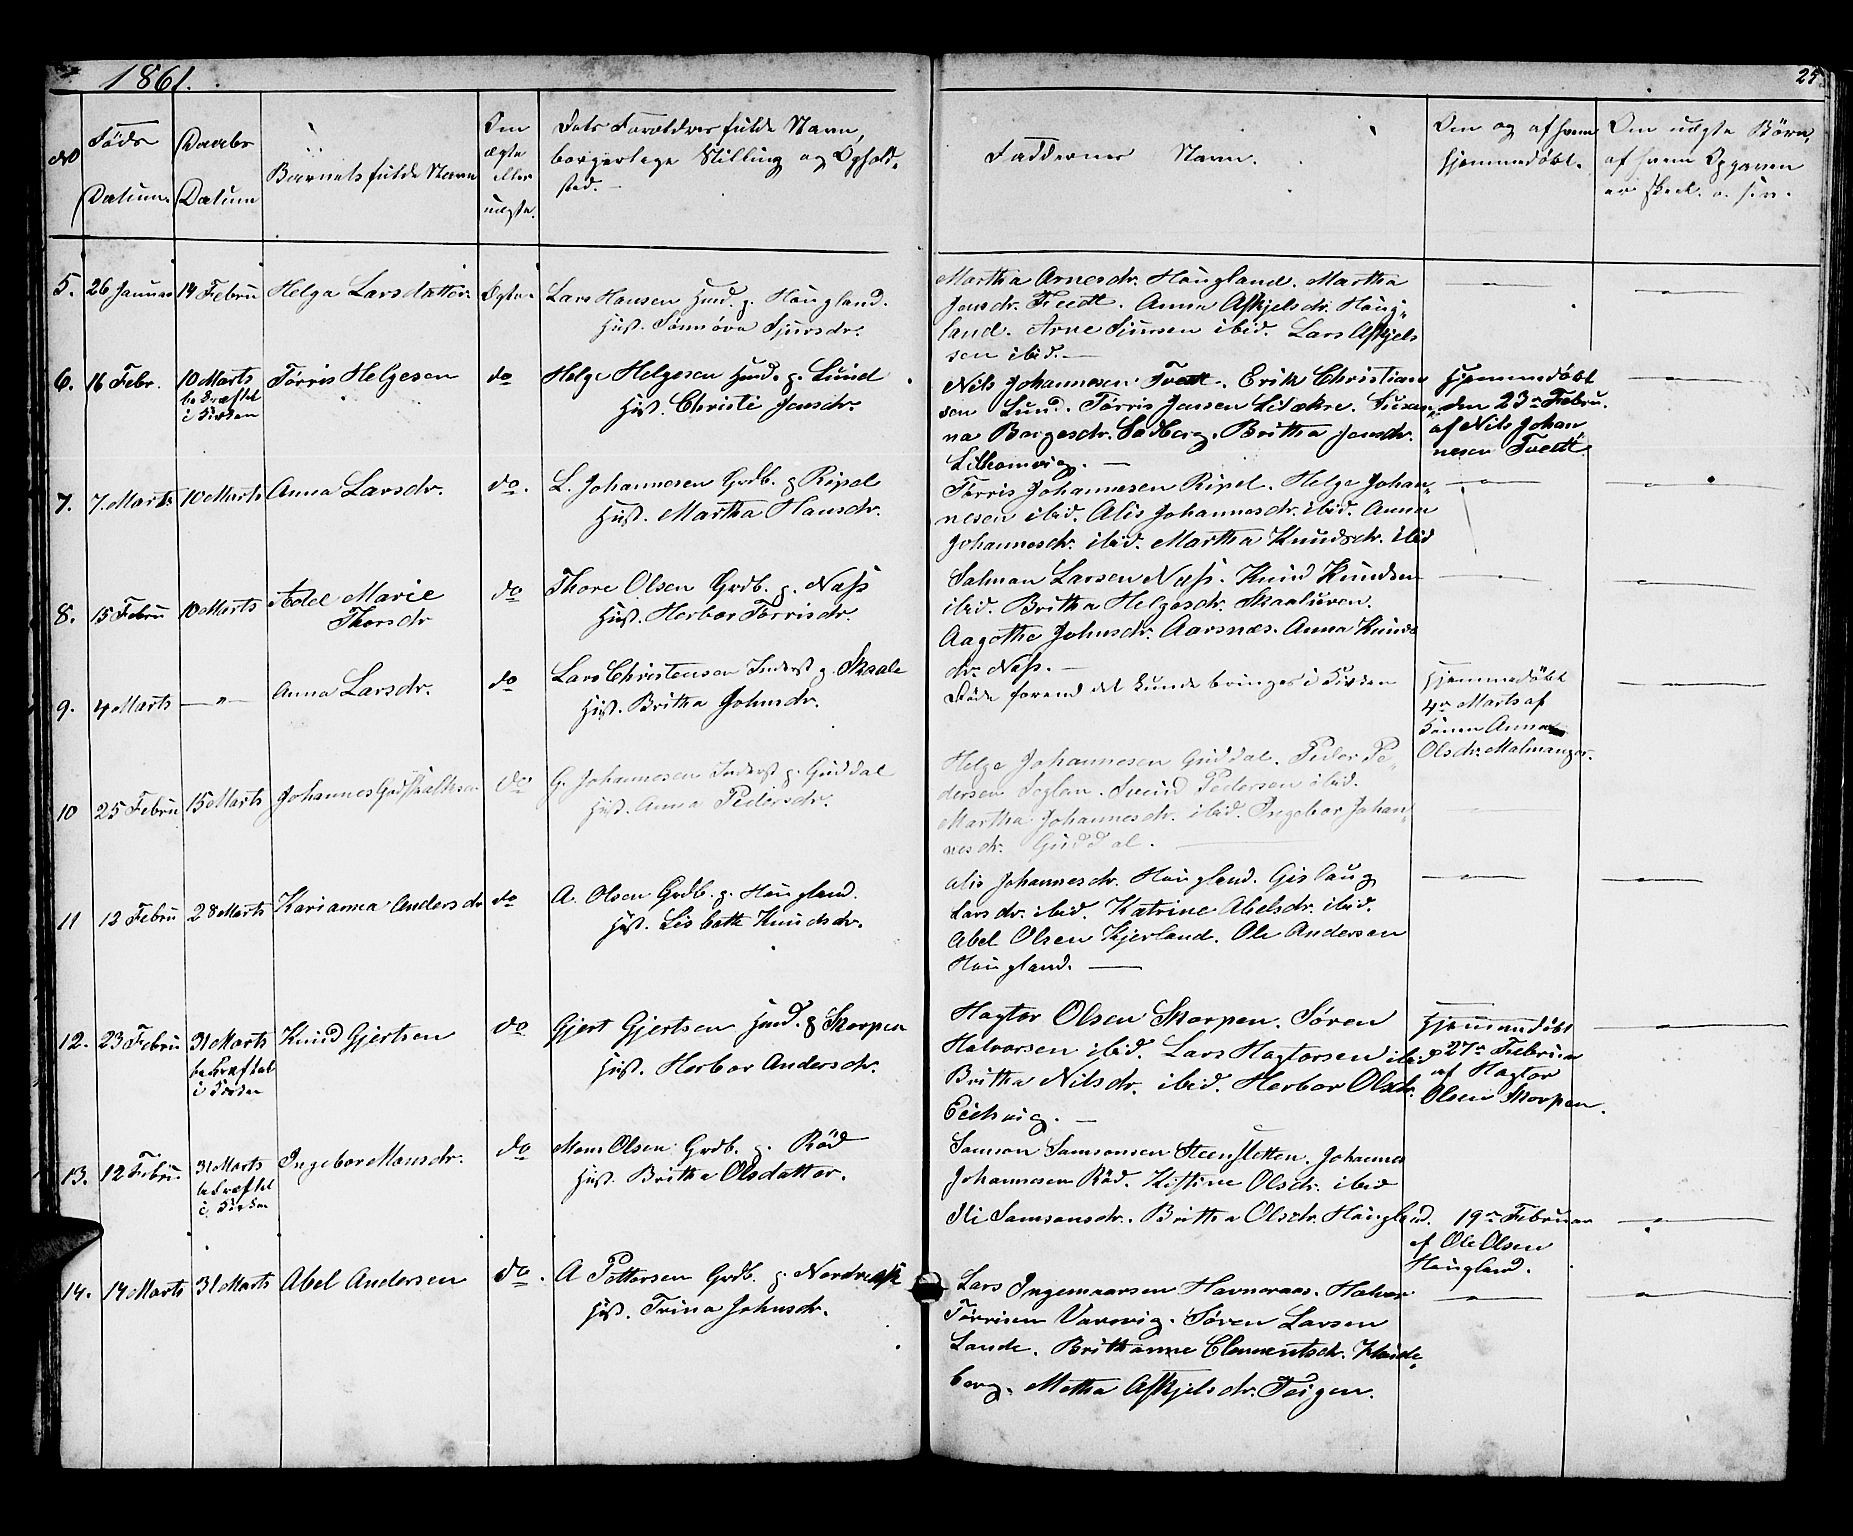 1861.
25
No
Føds
Datum.
Daabs
Datum
Barnets fulde Navn
Om
ægte
eller
uægte.
Dets Forældres fulde Navn,
borgerlige Stilling og Ophold-
sted.
Faddernes Navn.
Om og af hvem
hjemmedøbt.
Om uægte Børn,
af hvem Opgaven
er skeet.
5. 26 Januar 14 Febru Helga Larsdatter Ægte Lars Hansen Huusd. p. Haugland.
Hust. Sønnøva Sjursdr.
Martha Arnesdr. Haugland. Martha
Jonsdr. Tvedt. Anna Askjelsdr. Haug-
land. Arne Simsen ibid. Lars Askjels
sen ibid.
6. 16 Febr. 10 Marts
bekræftet
i Kirken
Tørris Helgesen do Helge Helgesen Huusd. p. Lund
Hust. Christi Jonsdr.
Nils Johannesen Tvedt. Erik Christian
sen Lund. Tørris Jansen Lisækre. Susan-
na Borgesdr. Solberg. Britha Jonsdr.
Hjemmedøbt
den 23de Febru.
af Nils Johan
nesen Tvedt
7. 7. Marts 10 Marts Anna Larsdr. do. L. Johannesen Grdb. p Ripel
Hust. Martha Hansdr.
Tørris Johannesen Ripel. Helge Johan-
nesen ibid. Alis Johannesdr. ibid. Anna
Johannesdr. ibid. Martha Knudsdr. ibid
8. 15 Febru 10 Marts Adel Marie
Thorsdr
do Thore Olsen Grdb. p. Næss
Hust. Herbor Tørrisdr.
Salman Larsen Næss. Knud Knudsen
ibid. Britha Helgesdr. Skaaluren.
Aagotha Johnsdr. Aarsnæs. Anna Knuds
dr. Næss.
9. 4 Marts — " — Anna Larsdr. do Lars Christensen Inderst p. Skaale
Hust. Britha Johnsdr.
Døde forend det kunde bringes i Kirken
Hjemmedøbt
4de Marts af
Konen Anna
Olsdr. Malmanger.
10 25 Febru 15 Marts Johannes Gudskalksen do G. Johannesen Inderst p. Guddal
Hust. Anna Pedersdr.
Helge Johannesen Guddal. Peder Pe-
dersen Seglen. Svend Pedersen ibid.
Martha Johannesdr. ibid. Ingebor Johan-
nesdr. Guddal.
11 12 Febru 28 Marts Karianna Andersdr do A. Olsen Grdb. p. Haugland.
Hust. Lisbeth Knudsdr.
Alis Johannesdr. Haugland. Gislaug
Larsdr. ibid. Katrine Abelsdr. ibid.
Abel Olsen Kjerland. Ole Andersen
Haugland.
12. 23 Febru 31 Marts
bekræftet
i Kirken
Knud Gjertsen do Gjert Gjertsen Huusd. p Skorpen
Hust. Herbor Andersdr.
Hagtor Olsen Skorpen. Søren
Halvorsen ibid. Lars Hagtorsen ibid
Britha Nilsdr. ibid. Herbor Olsdr.
Eidsvig.
Hjemmedøbt
27de Februar
af Hagtor
Olsen Skorpen.
13. 12 Febru. 31 Marts
bekræftet
i Kirken
Ingebor Monsdr. do Mons Olsen Grdb. p. Röd
Hust. Britha Olsdatter.
Samson Samsonsen Steensletten. Johannes
Johannesen Röd. Kistine Olsdr. ibid
Ili Samsonsdr. Britha Olsdr. Haugland.
19de Februar
af Ole Olsen
Haugland.
14. 14 Marts 31 Marts Abel Andersen do. A Pettersen Grdb. p Nordrestk
Hust. Trina Johnsdr.
Lars Ingemaarsen Havneraas. Halvor
Tørrisen Varvig. Søren Larsen
Lande. Brithanne Clementsdr. Hande-
berg. Metha Askjelsdr. Teigen.